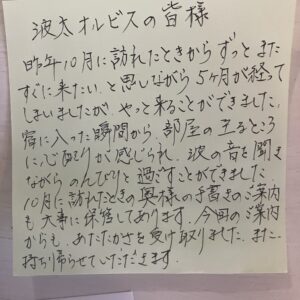 波太オルビスの皆様
昨年10月に訪れたときからずっと また
すぐに来たい、と思しながら 5ヶ月が経って
しまいましたが やっと来ることができました。
宿に入った瞬間から、部屋の至るところ
に心配りが感じられ、波の音を聞き
ながら のんびりと過ごすことができました
10月に訪れたときの奥様の手書きのご案内
も大事に保管してあります。今回のご案内
からも、あたたかさを受け取りました。また、
持ち帰らせていただきます。